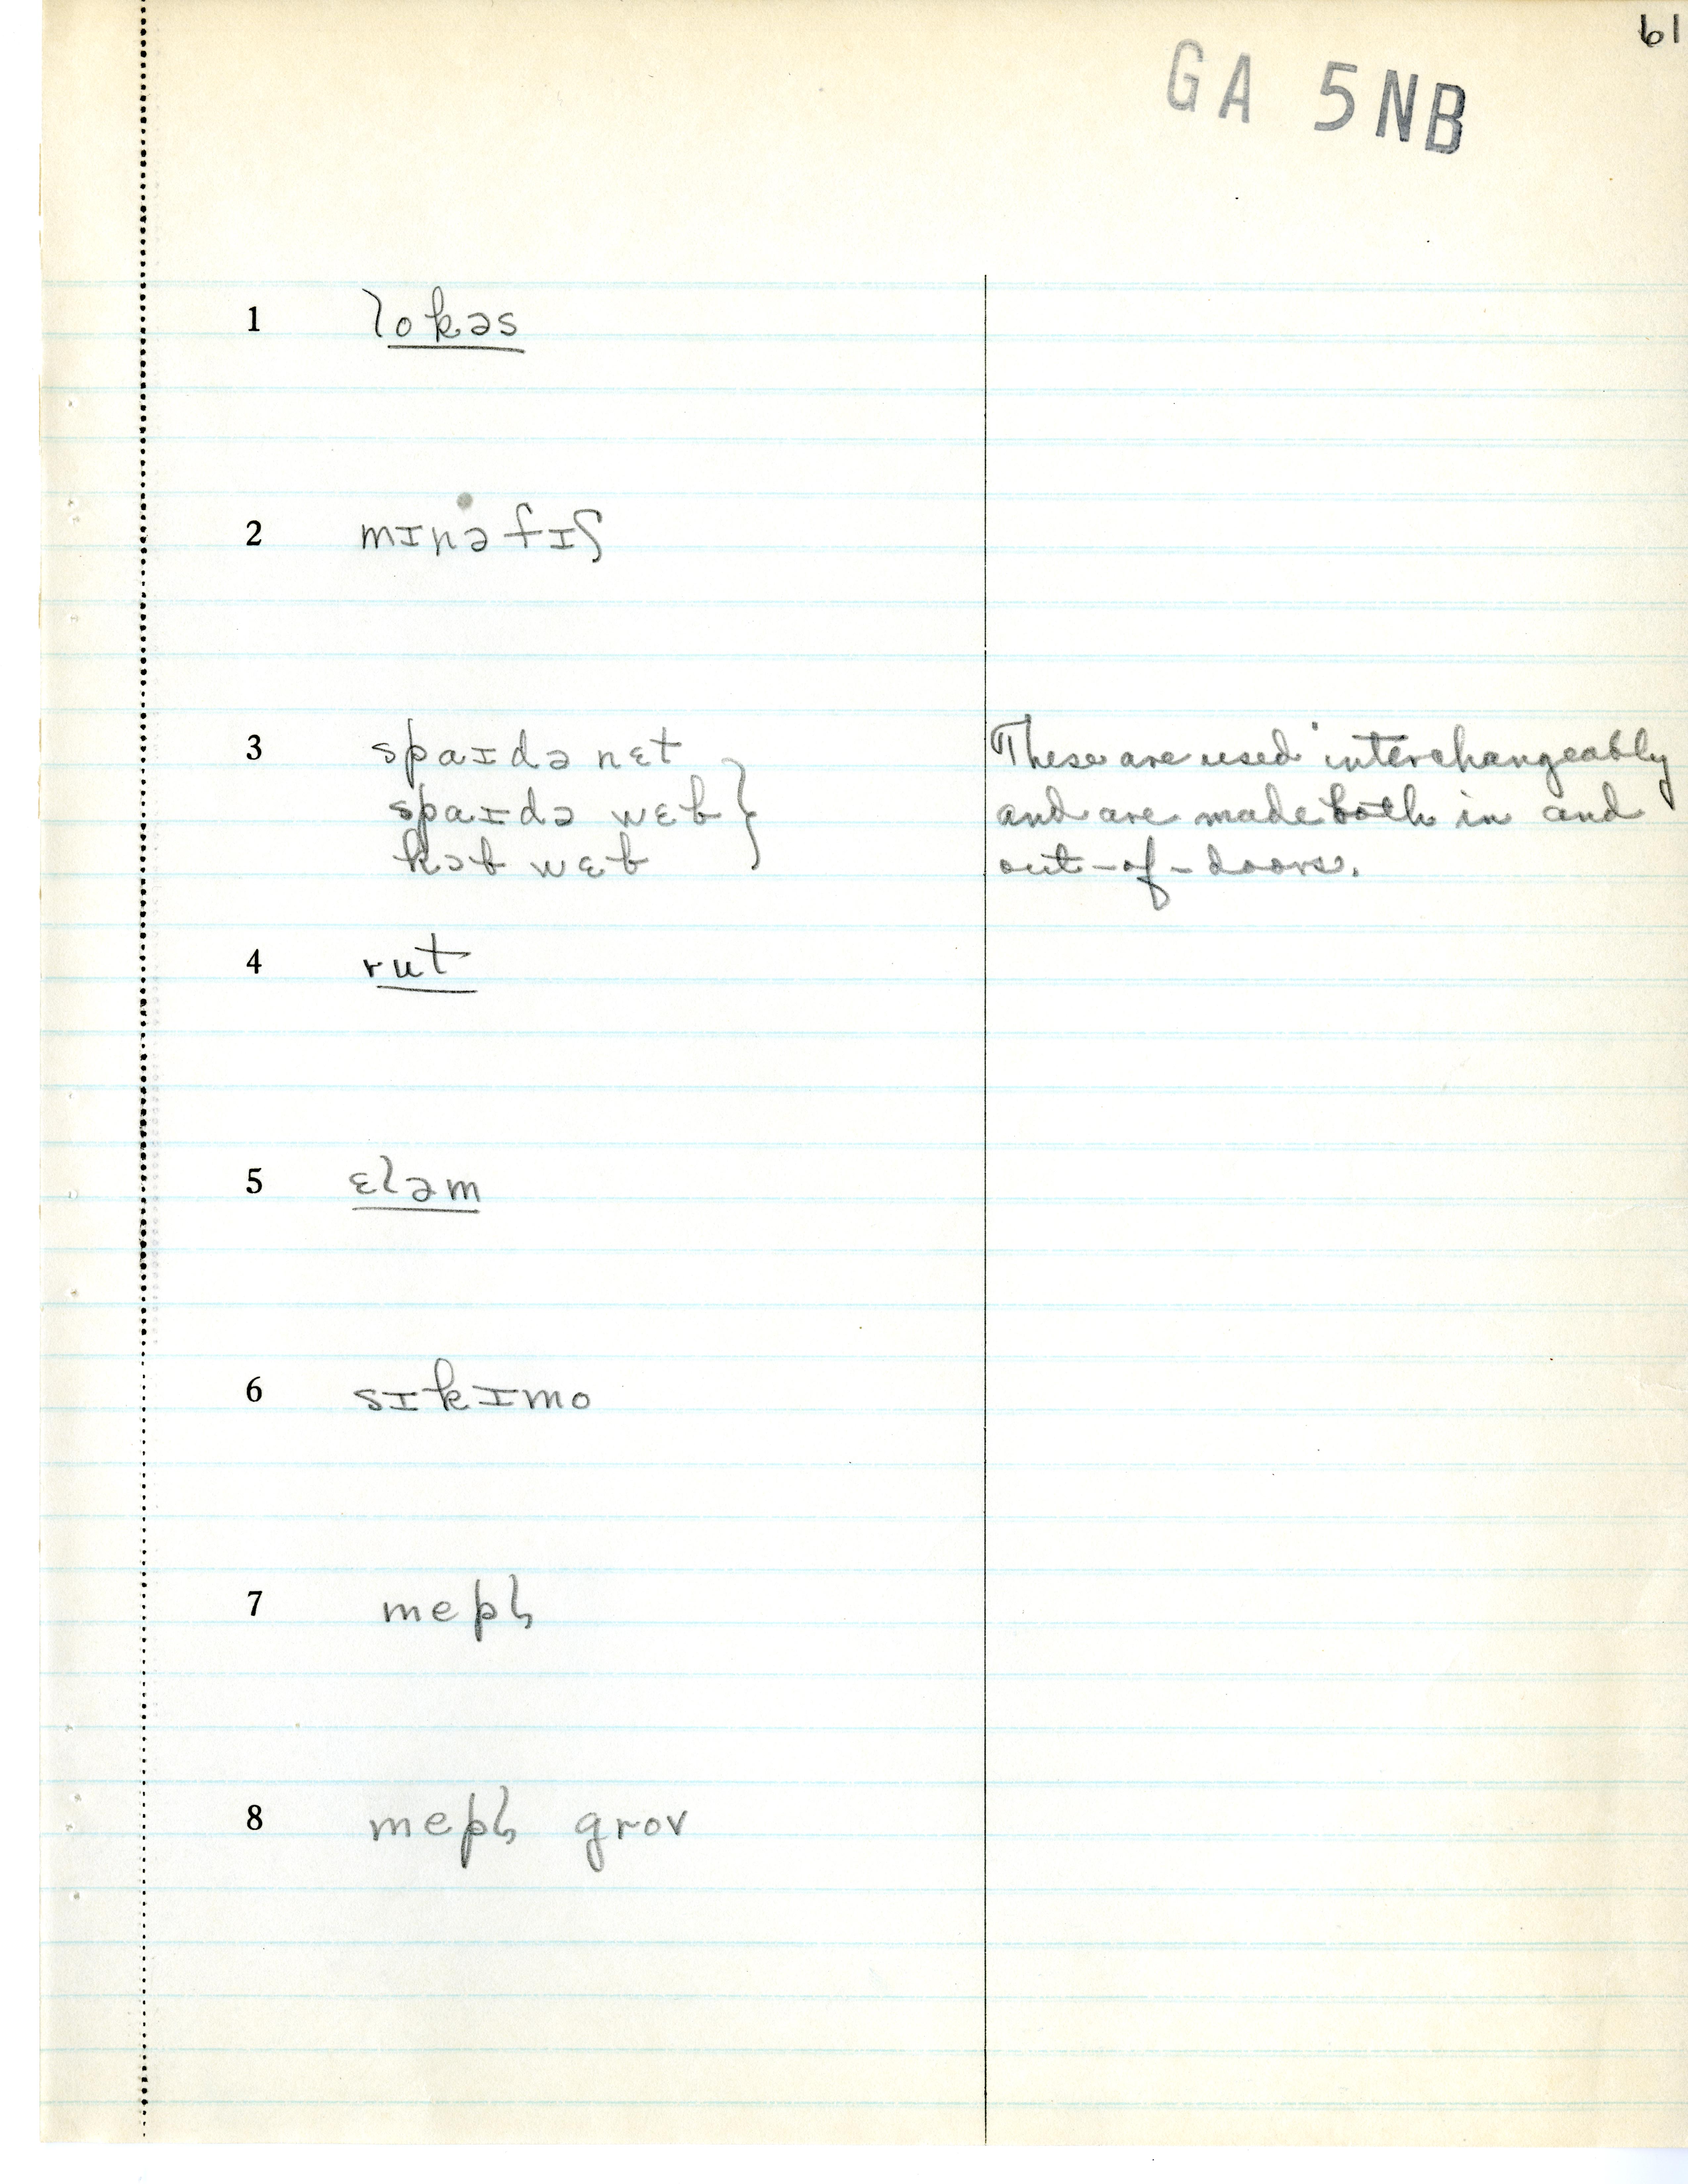 61
GA 5NB
1 lokəs
2 mɪnəfɪʃ
3 spaɪdə nɛt
spaɪdə wɛb }
kɔb wɛb
These are used interchangeably
and are made both in and
out-of-doors.
4 rut
5 ɛləm
6 sɪkɪmo
7 mepl̩
8 mepl̩ grov